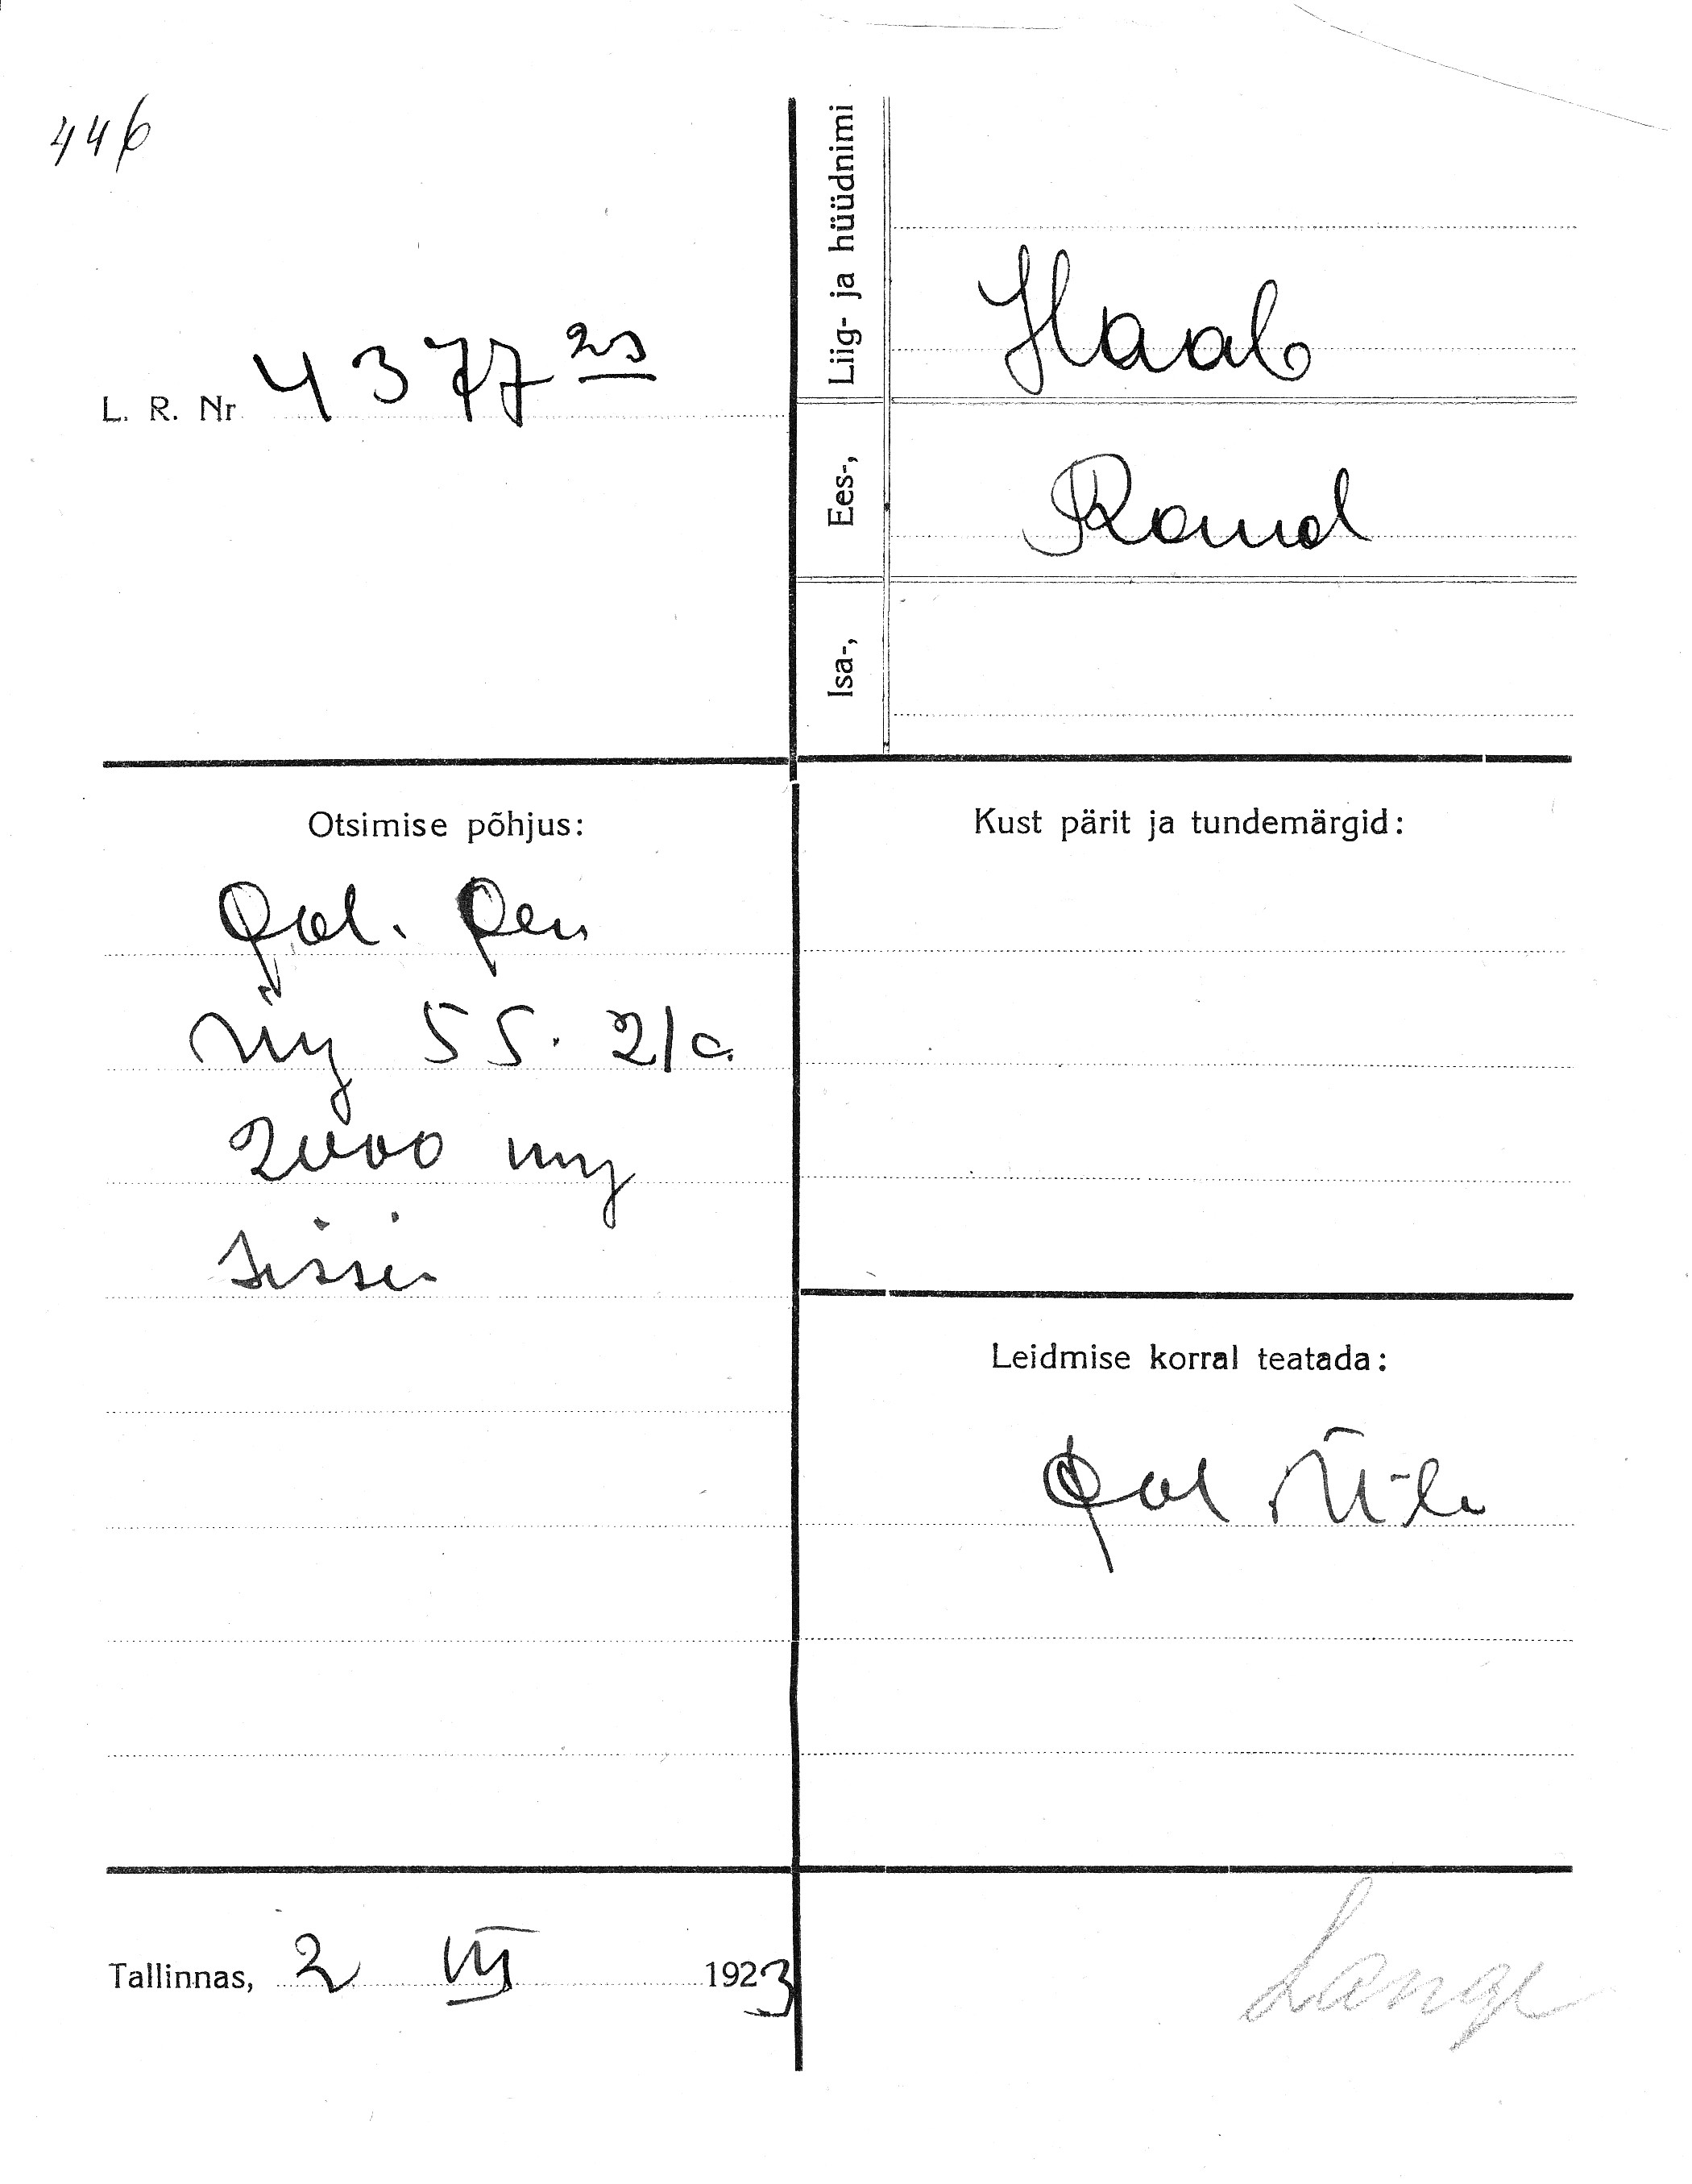 446
L. R. Nr 4377 23
Liig- ja hüüdnimi
Haab
Ees-,
Raud
Isa-,
Otsimise põhjus:
Pol. Pen
55. 21 a.
2000 mrg
sisse.
Kust pärit ja tundemärgid:
Leidmise korral teatada:
Pol Ül.
Tallinnas, 2 VII 1923
Lange